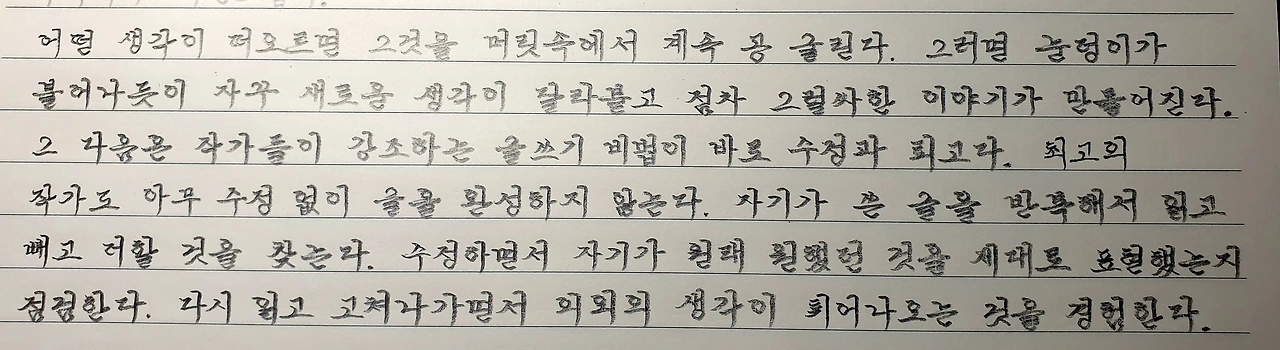 어떤 생각이 떠오르면 그것을 머릿속에서 계속 공 굴린다. 그러면 눈덩이가
불어나듯이 자꾸 새로운 생각이 달라붙고 점차 그럴싸한 이야기가 만들어진다.
그 다음은 작가들이 강조하는 글쓰기 비법이 바로 수정과 퇴고다. 최고의
작가도 아무 수정 없이 글을 완성하지 않는다. 자기가 쓴 글을 반복해서 읽고
빼고 더할 것을 찾는다. 수정하면서 자기가 원래 원했던 것을 제대로 표현했는지
점검한다. 다시 읽고 고쳐나가면서 의외의 생각이 튀어나오는 것을 경험한다.